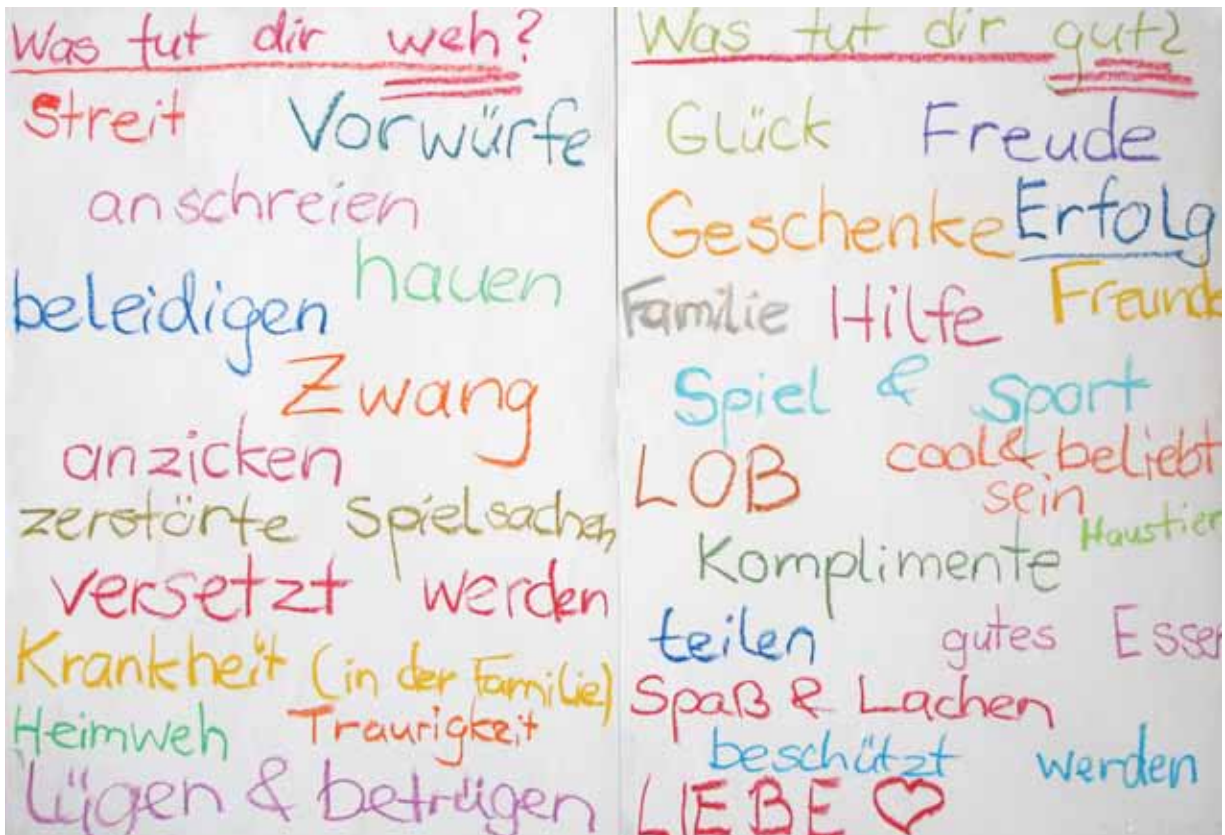 Was tut dir weh?
Streit Vorwürfe
anschreien
hauen
beleidigen
Zwang
anzicken
zerstörte Spielsachen
versetzt werden
Krankheit (in der Familie)
Heimweh Traurigkeit
Lügen & betrügen
Was tut dir gut?
Glück Freude
Geschenke Erfolg
Familie Hilfe Freunde
Spiel & Sport
LOB cool & beliebt
sein
Haustier
Komplimente
teilen gutes Essen
Spaß & Lachen
beschützt werden
LIEBE